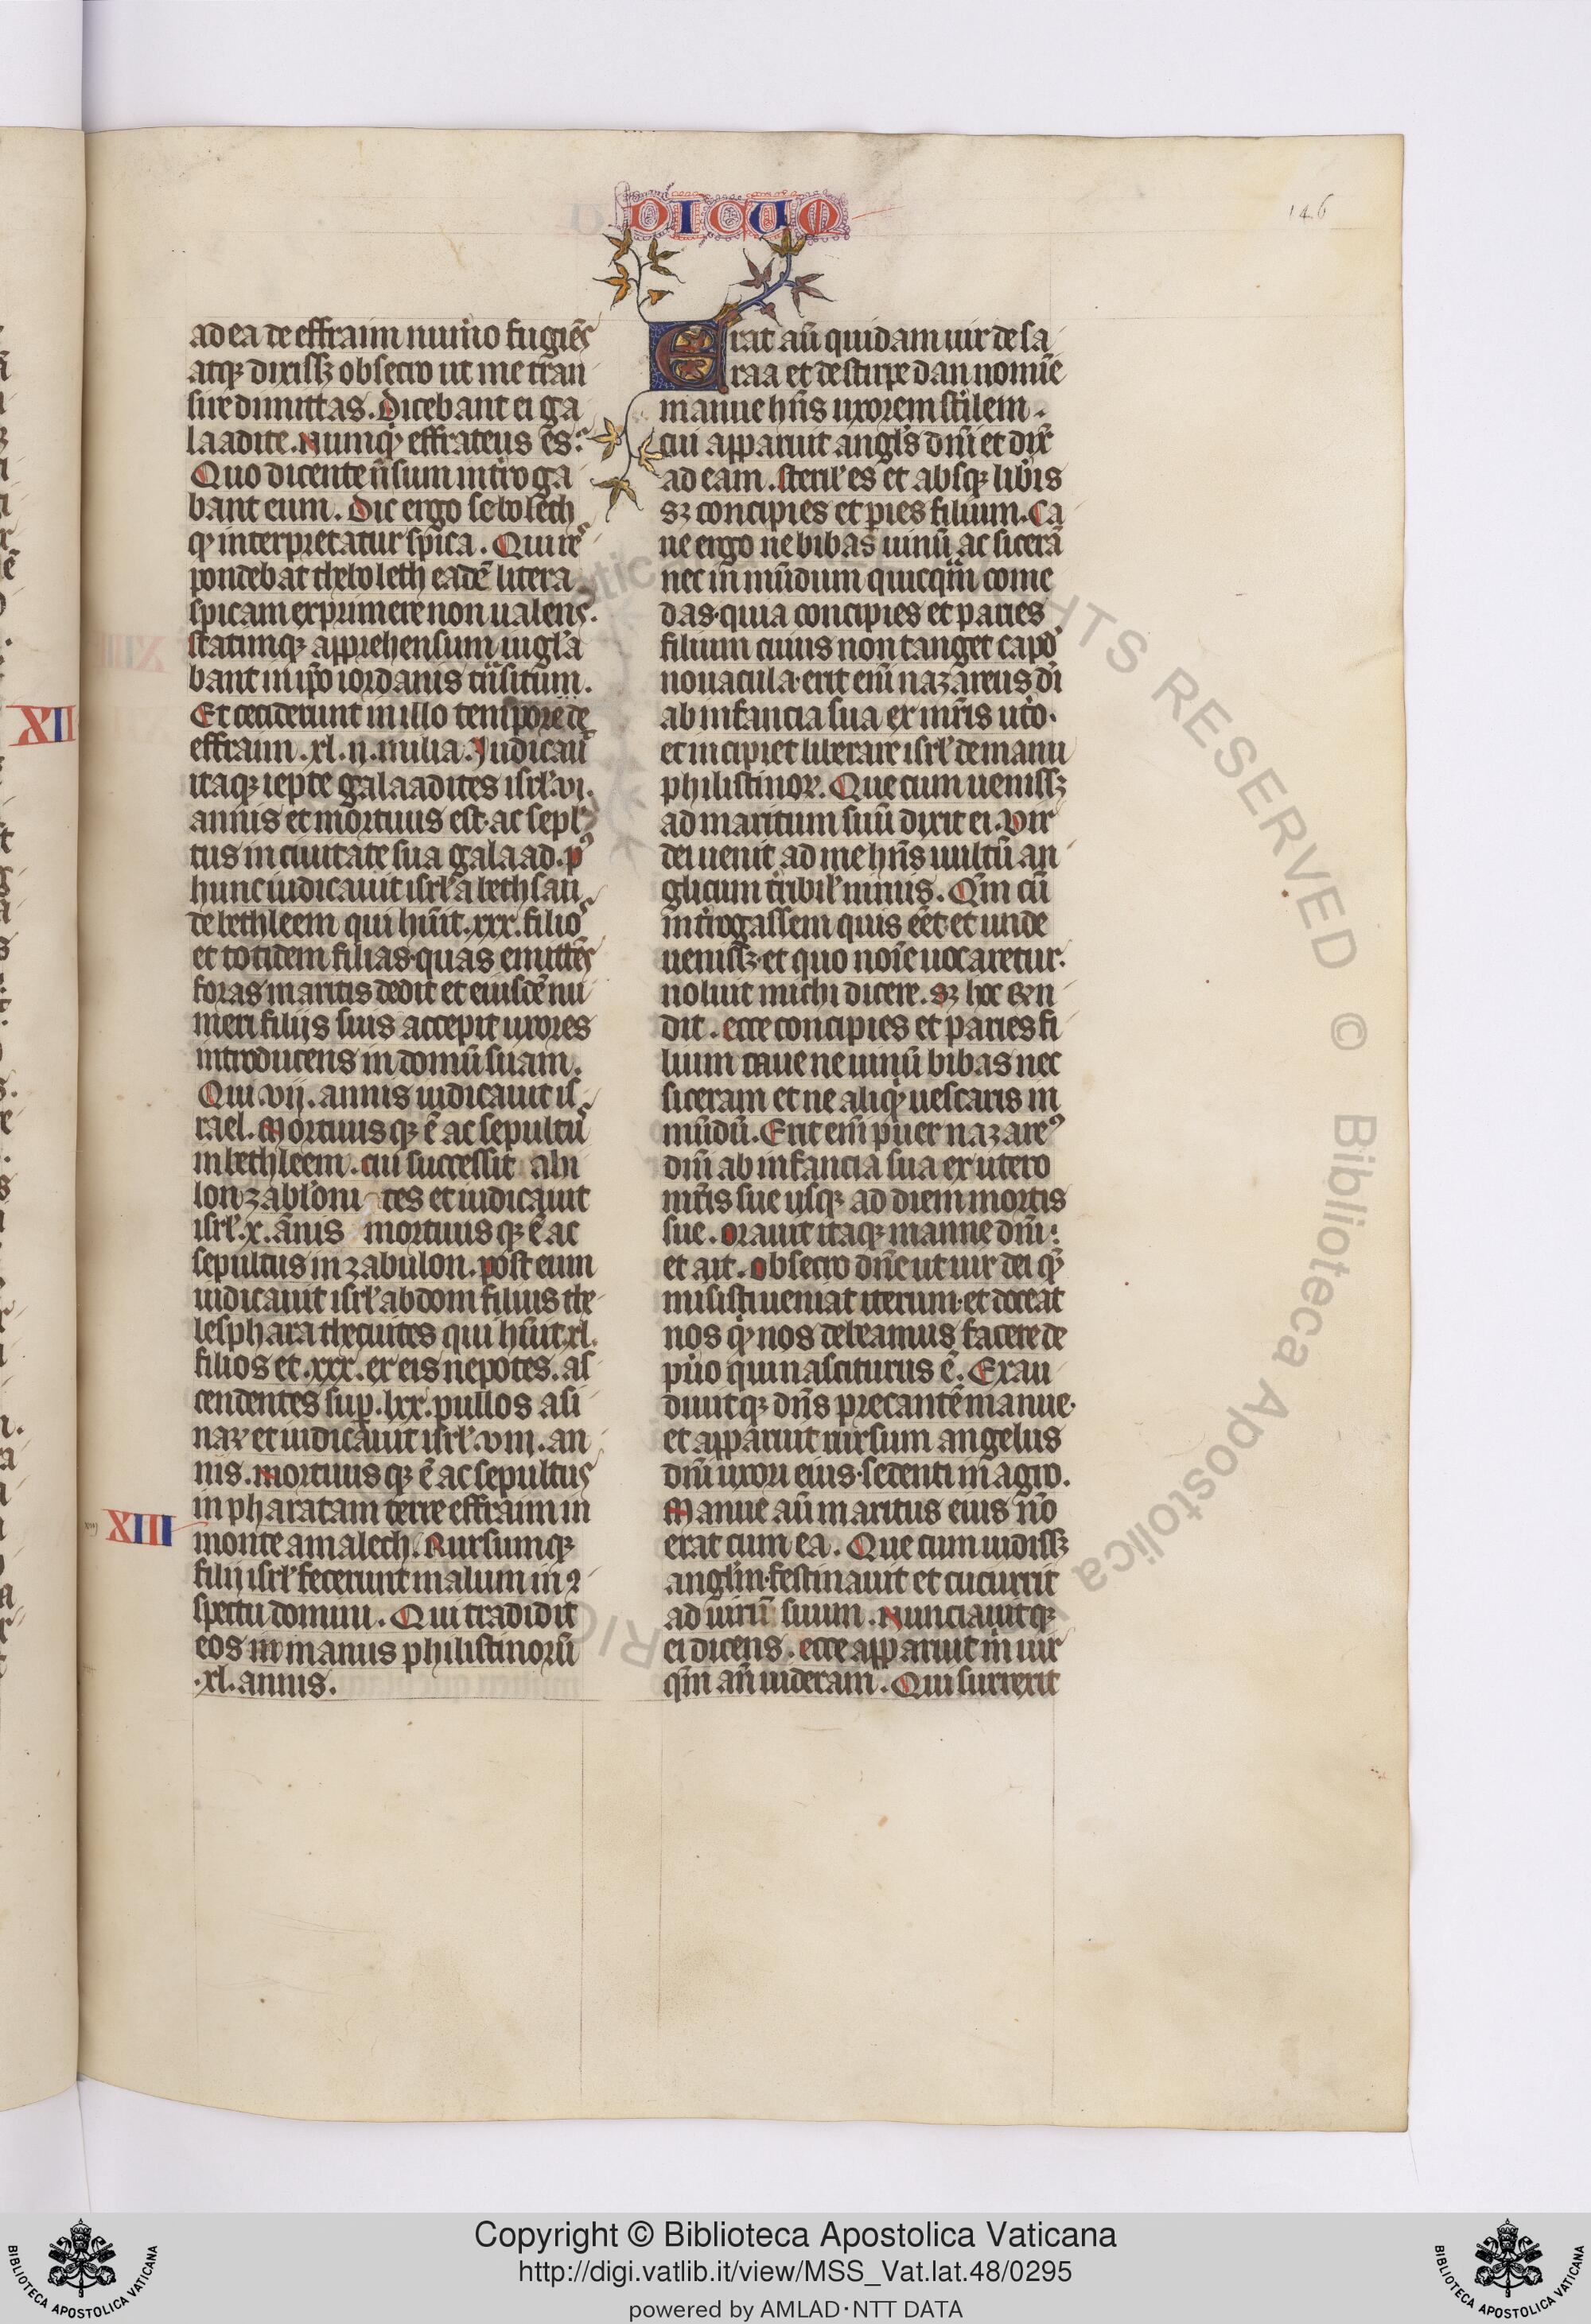 DICUM
146
ad ea de effraim num̅o fugie̅s
atqꝫ dixissꝫ obsecro ut me tran
sire dimittas. Dicebant ei ga
laadite. Numqͥd effrateus es.
Quo dicente n̅ sum int̅roga
bant eum. Dic ergo sebolech
qͩ interpretatur spica. Qui res
pondebat theboleth eade̅ litera
spicam exprimere non ualens.
statimqꝫ apprehensum iugl̅a
bant in ip̅o iordanis tͣnsitum.
Et ceciderunt in illo tempore de
effraim .xl.ii. milia. Iudicauͭ
itaqꝫ iepte galaadites isrl̅ .vi.
annis et mortuus est ac sepl̅
tus in ciuitate sua galaad. pꝰ
hunc iudicauit isrl̅ abethsan
de bethleem qui hu̅it .xxx. filios
et totidem filias quas emitte̅s
foras maritis dedit et eiusde̅ nu
meri filiis suis accepit uxores
introducens in domu̅ suam.
Qui .vii. annis iudicauit is
rael. Mortuusqꝫ e̅ ac sepultus
in bethleem. cui successit ahi
lon zabl̅oni tes et iudicauit
isrl̅ .x. a̅nis mortuusqꝫ e̅ ac
sepultus in zabulon. post eum
iudicauit isrl̅ abdom filius the
lesphara thecuites qui hu̅it .xl.
filios et .xxx. ex eis nepotes. as
cendentes sup̲ .lxx. pullos asi
naꝝ et iudicauit isrl̅ .viii. an
nis. Mortuusqꝫ e̅ ac sepultus
in pharatam terre effraim in
monte amalech. Rursumqꝫ
filii isrl̅ fecerunt malum in ꝯ
spectu domini. Qui tradidit
eos in manus philistinoru̅
.xl. annis.
XII
XIII
xiii
Erat au̅ quidam uir de sa
raa et de stirpe dan nomi̅e
manue hn̅s uxorem st̅ilem.
cui apparuit angl̅s dn̅i et dix̅
ad eam. steril̅ es et absqꝫ libͥis
sꝫ concipies et p̲ies filium. Ca
ue ergo ne bibas uinu̅ ac sicera̅
nec i̅mu̅dum quicqͣm come
das quia concipies et paries
filium cuius non tanget capud
nouacula erit eni̅ nazareus di̅
ab infancia sua ex mr̅is ut̅o.
et incipiet liberare isrl̅ de manu
philistinoꝝ. Que cum uenissꝫ
ad maritum suu̅ dixit ei. Vir
dei uenit ad me hn̅s uultu̅ an
glicum t̅ribil̅ nimis. Qͤm cu̅
int̅rogassem quis ee̅t et unde
uenissꝫ et quo noi̅e uocaretur
noluit michi dicere. sꝫ hoc rn̅
dit. ecce concipies et paries fi
lium caue ne uinu̅ bibas nec
siceram et ne aliqͦ uescaris in
mu̅du̅. Erit eni̅ puer nazareꝰ
dn̅i ab infancia sua ex utero
mr̅is sue usqꝫ ad diem mortis
sue. Orauit itaqꝫ manue dn̅m
et ait. Obsecro dn̅e ut uir dei qͤm
misisti ueniat iterum et doceat
nos qͥd nos debeamus facere de
pu̅o qui nasciturus e̅. Exau
diuitqꝫ dn̅s precante̅ manue
et apparuit rursum angelus
dn̅i uxori eius sedenti in agro.
Manue au̅ maritus eius no̅
erat cum ea. Que cum uidissꝫ
angl̅m festinauit et cucurrit
ad uiru̅ suum. Nunciauitqꝫ
ei dicens. ecce apparuit mͥ uir
qͤm an̅ uideram. Qui surrexit
Copyright © Biblioteca Apostolica Vaticana
http://digi.vatlib.it/view/MSS_Vat.lat.48/0295
powered by AMLAD·NTT DATA
BIBLIOTECA APOSTOLICA VATICANA
BIBLIOTECA APOSTOLICA VATICANA
RIGHTS RESERVED © Biblioteca Apostolica